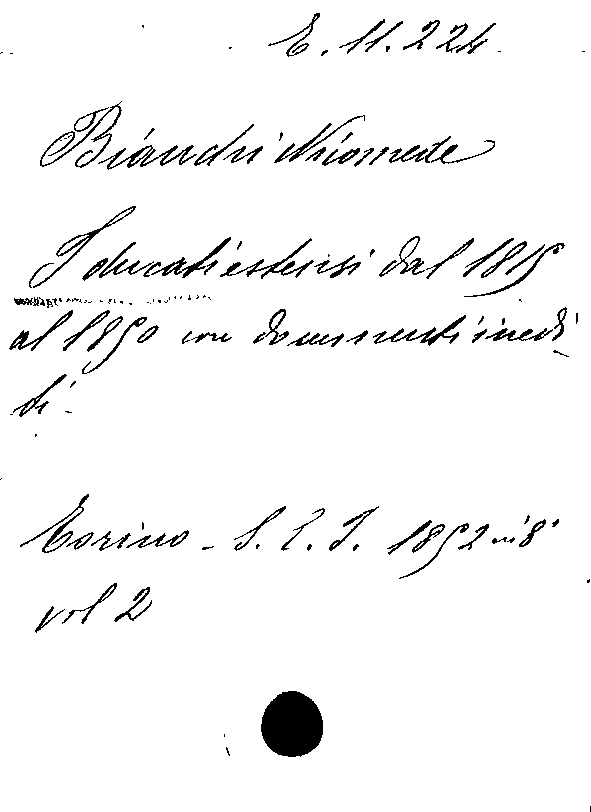 E. 11. 224.
Bianchi Nicomede
I ducati estensi dal 1815
al 1850 con documenti inedi
ti -
Torino - S. E. I. 1852 in 8°
vol 2